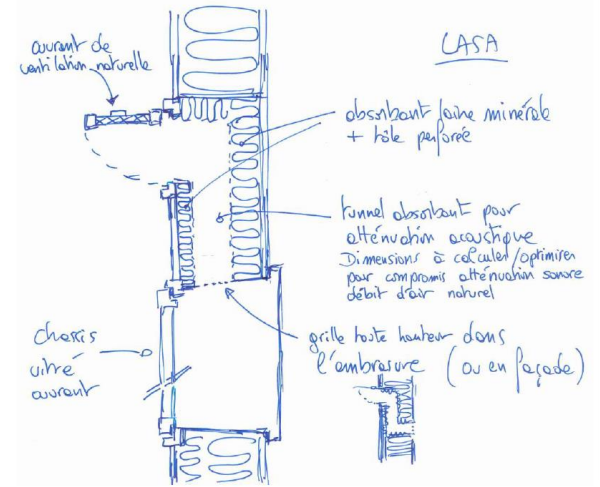 LASA
ouvrant de
ventilation naturelle
absorbant laine minérale
+ tôle perforée
tunnel absorbant pour
atténuation acoustique
Dimensions à calculer/optimiser
pour compromis atténuation sonore
débit d'air naturel
grille toute hauteur dans
l'embrasure (ou en façade)
chassis
vitré
ouvrant